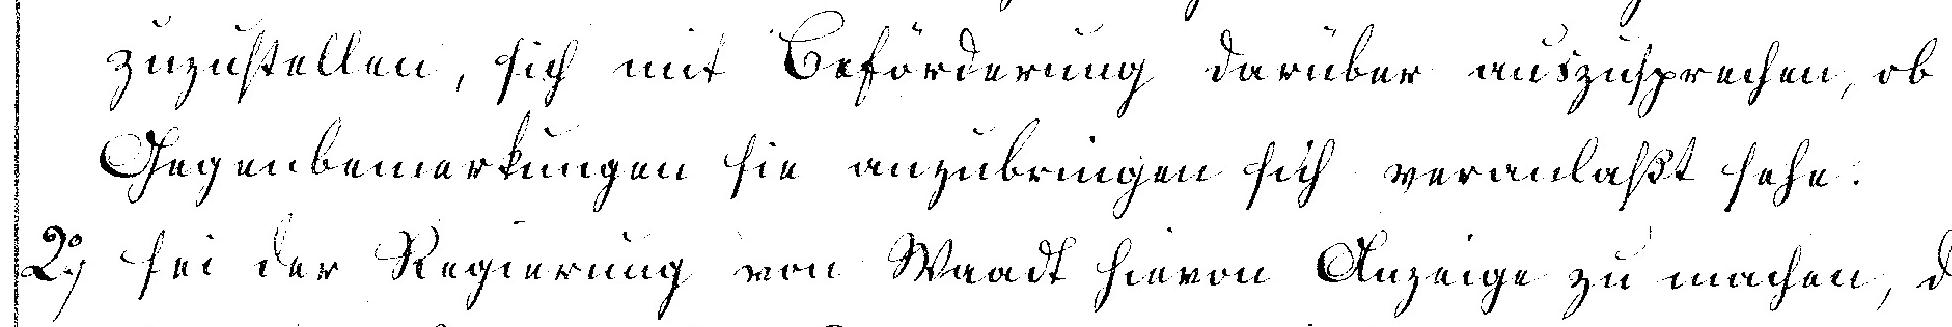 zuzustellen, sich mit Beförderung darüber auszusprechen, ob
Gegenbemerkungen sie anzubringen sich veranlaßt sehe.
2º) sei der Regierung von Waadt hievon Anzeige zu machen, d